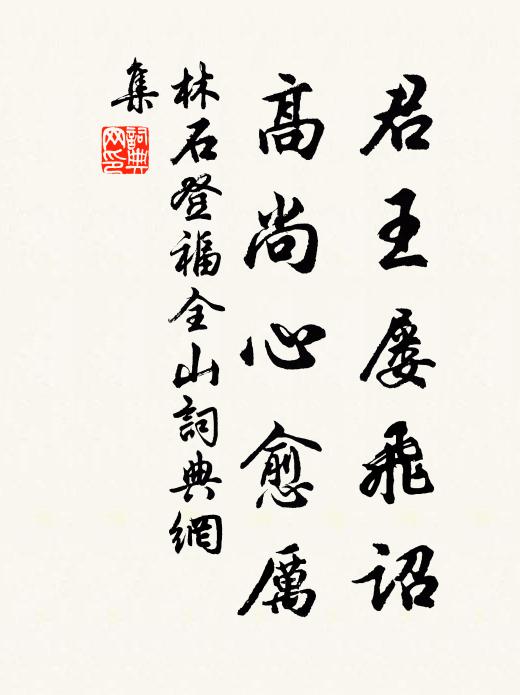 君王屡飛詔
高尚心愈厲
林石登福全山詞典網
集
詞典網印